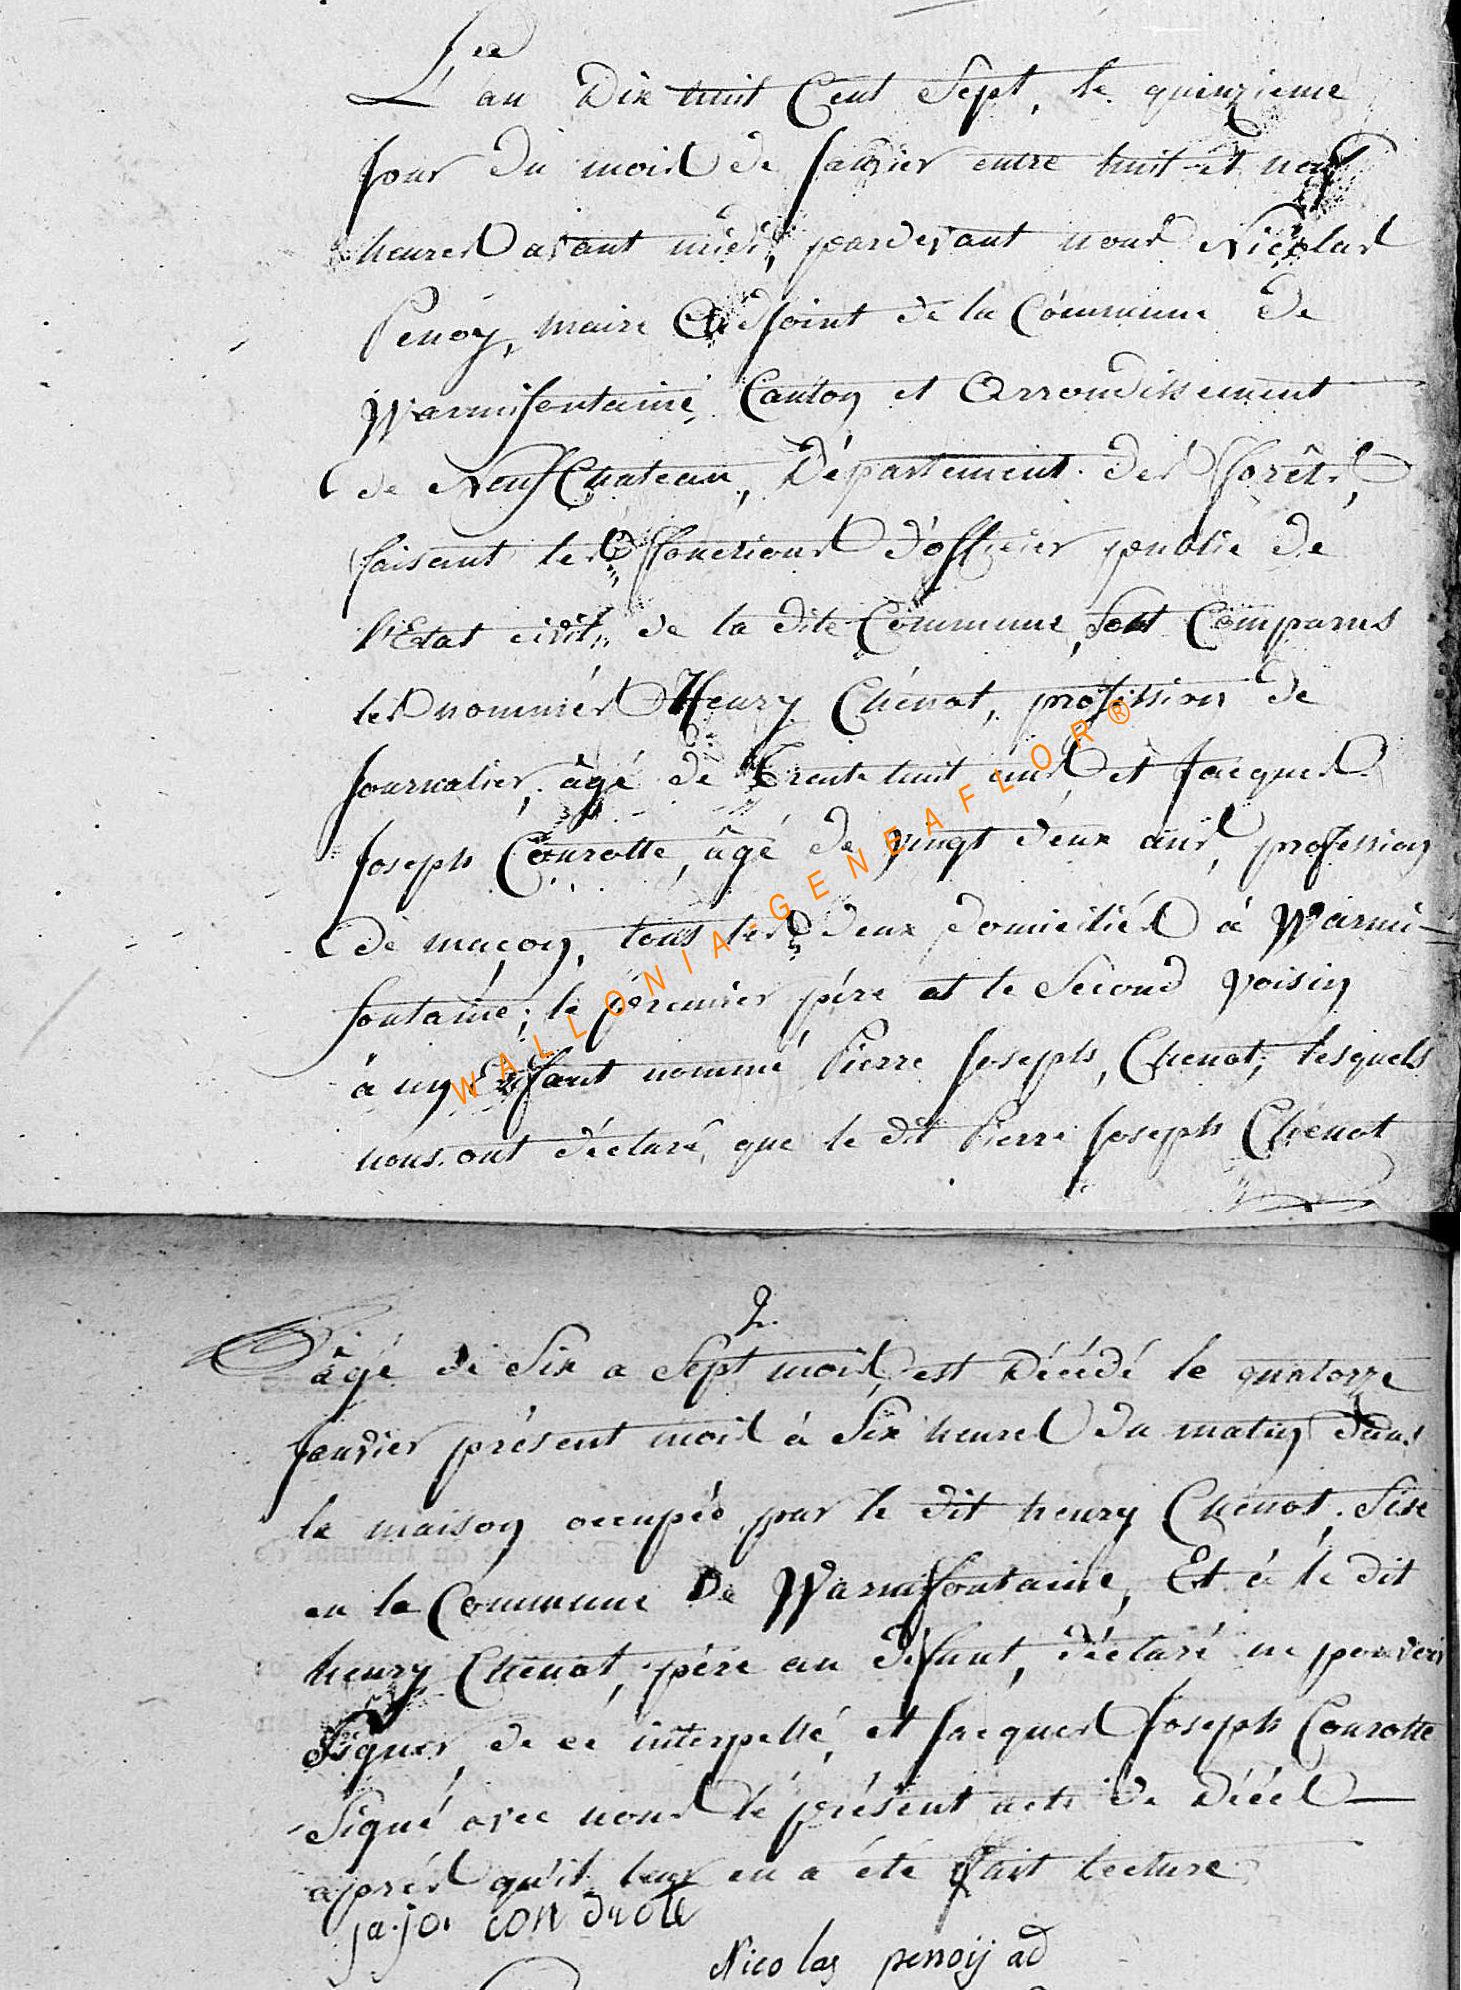 L'an Dix huit Cent Sept, le quinzieme
Jour du mois de Janvier entre huit et neuf
heures avant midi, pardevant nous Nicolas
Penoy, maire Adjoint de la Commune de
Warmifontaine, Canton et Arrondissement
de NeufChateau, Département des fforêts,
faisant les ffonctions d'officier public de
l'Etat civil, de la dite Commune, sont Comparus
les nommés Henry Chénot, profession de
Journalier, âgé de Trente huit ans, et Jacques
Joseph Courotte, âgé de vingt deux ans, profession
de maçon, tous les deux domiciliés à Warmi-
fontaine; le premier père et le Second Voisin
à un Enfant nommé Pierre Joseph, Chenot, lesquels
nous ont déclaré, que le dit Pierre Joseph Chénot
WALLONIA-GENEAFLOR®
2.
âgé de Six a Sept mois, est Décédé le quatorze
Janvier présent mois à Six heures du matin dans
la maison occupée par le dit henry Chénot, Sise
en la Commune De Warmifontaine, Et à le dit
henry Chénot, père au défunt, déclaré ne pouvoir
Signer, de ce interpellé, et Jacques Joseph Courotte
Signé avec nous le présent acte de Décès
après qu'il leur en a été fait lecture
ja.jo.
Nicolas penoij ad